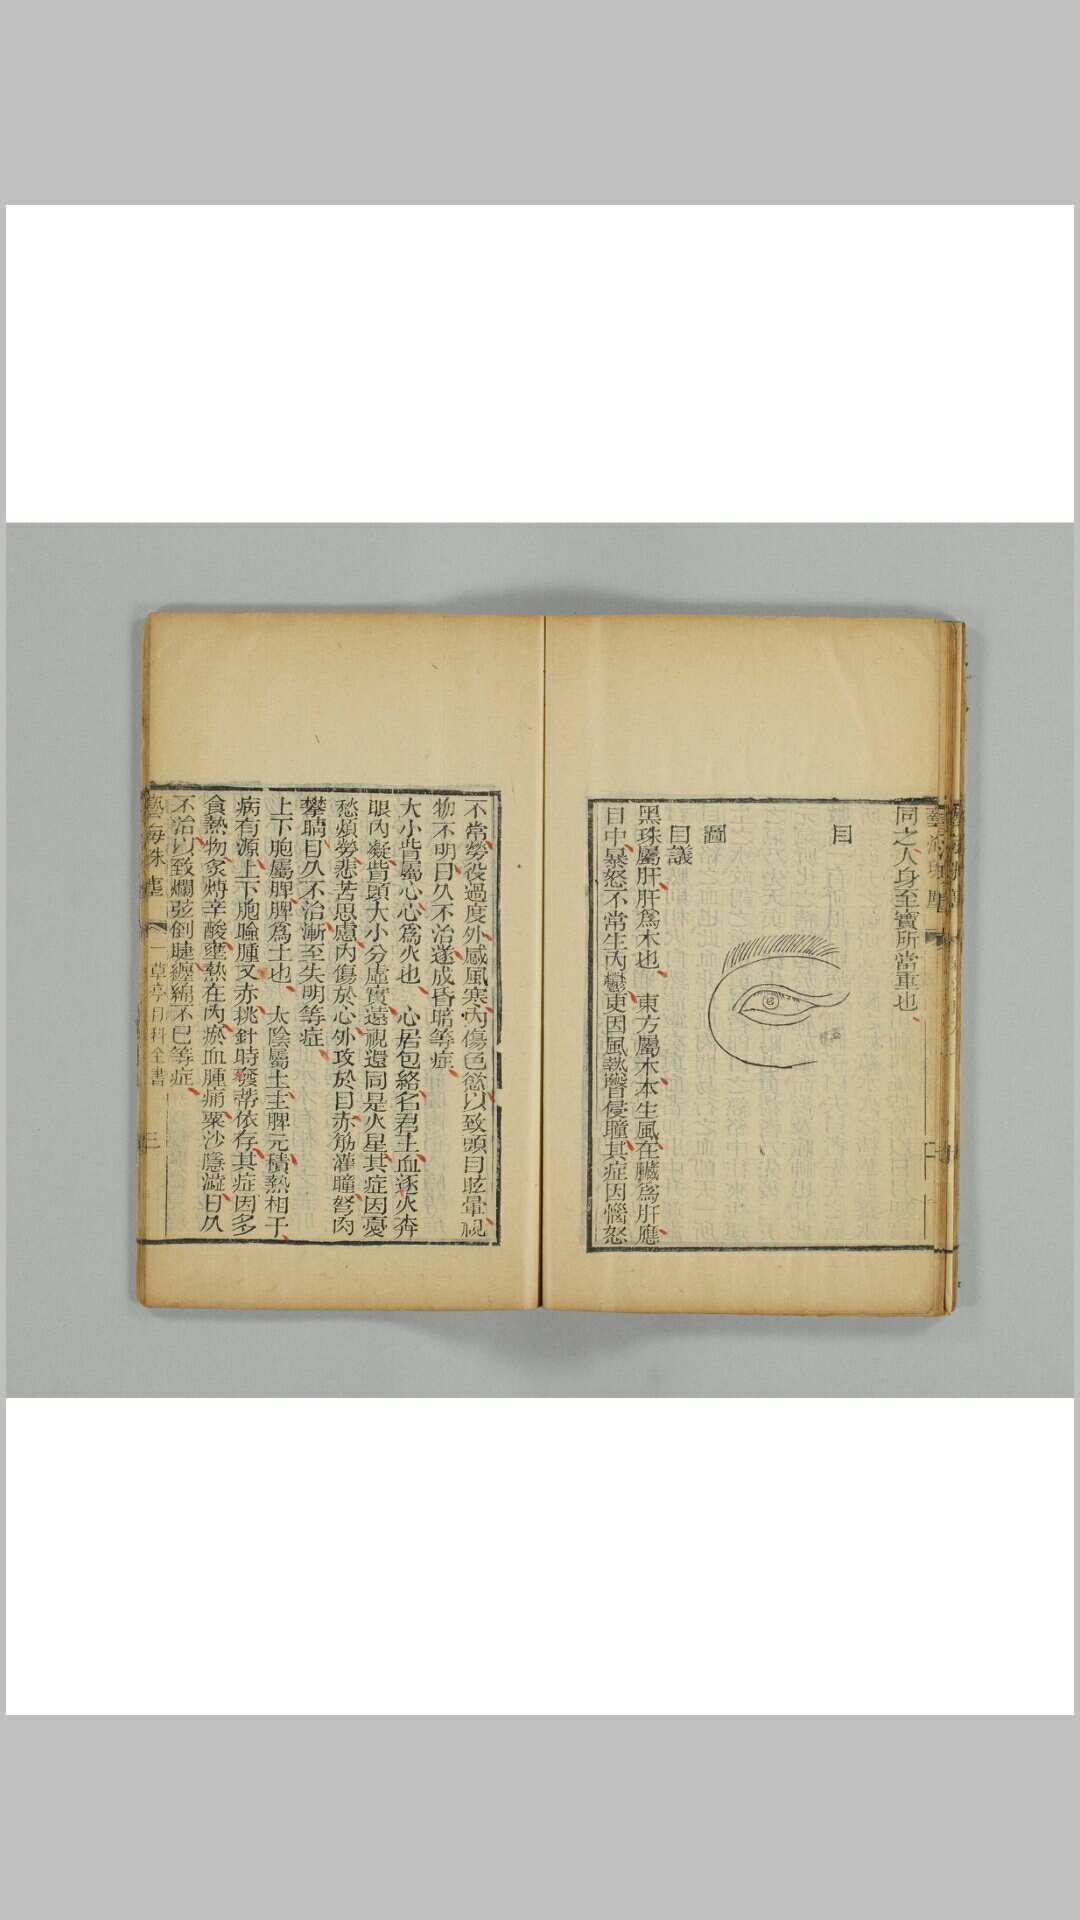 同之人身至寶所當重也
目
圖
目議
黑珠屬肝肝爲木也 東方屬木木生風在臟爲肝應
目中暴怒不常生內鬱更因風熱瞖侵瞳其症因惱怒
不常勞役過度外感風寒內傷色慾以致頭目眩暈視
物不明日久不治遂成昏瞎等症
大小眥屬心心爲火也 心居包絡名君主血逐火奔
眼內凝眥頭大小分虛實遠視還同是火星其症因憂
愁煩勞悲苦思慮內傷於心外攻於目赤筋灌瞳胬肉
攀睛日久不治漸至失明等症
上下胞屬脾脾爲土也 太陰屬土主脾元積熱相干
病有源上下胞瞼腫又赤挑針時發蒂依存其症因多
食熱物炙煿辛酸壅熱在內瘀血腫痛粟沙隱澁日久
不治以致爛弦倒睫纏綿不已等症
藝海珠塵 一草亭目科全書 三